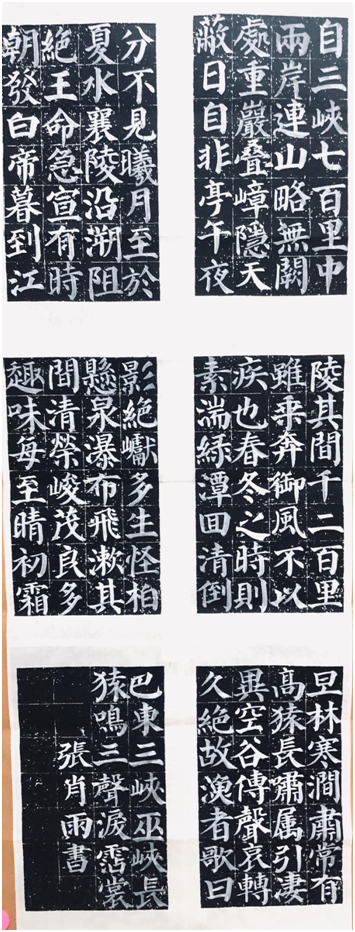 自三峽七百里中
兩岸連山略無闕
處重巖叠嶂隱天
蔽日自非亭午夜
分不見曦月至於
夏水襄陵沿溯阻
絶王命急宣有時
朝發白帝暮到江
陵其間千二百里
雖乗奔御風不以
疾也春冬之時則
素湍緑潭回清倒
影絶巘多生怪柏
懸泉瀑布飛漱其
間清榮峻茂良多
趣味每至晴初霜
旦林寒澗肅常有
高猿長嘯属引淒
異空谷傳聲哀轉
久絶故漁者歌曰
巴東三峽巫峽長
猿鳴三聲淚霑裳
張肖雨書